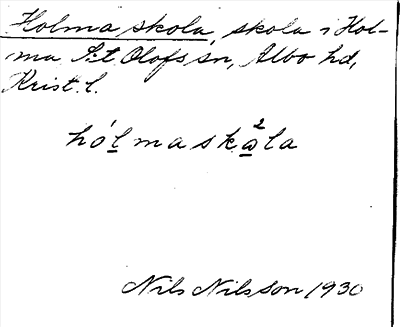 Holma skola, skola i Hol-
ma S:t Olofs sn, Albo hd,
Krist. l.
hól̲maskω̲²la
Nils Nilsson 1930